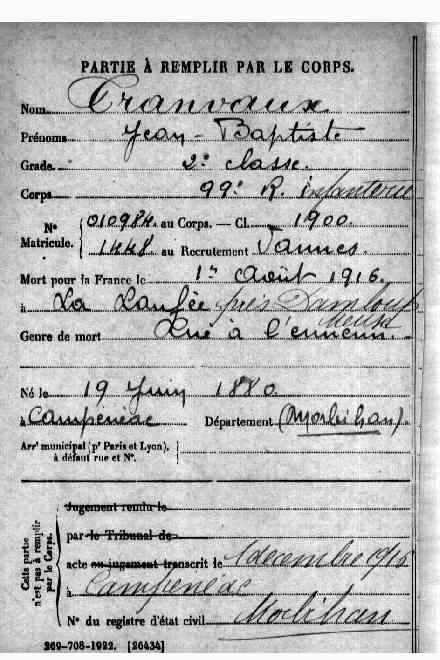 PARTIE À REMPLIR PAR LE CORPS.
Nom Tranvaux
Prénoms Jean-Baptiste
Grade 2e classe.
Corps 99e R. infanterie
N° Matricule. { 010984 au Corps. — Cl. 1900
1448 au Recrutement Vannes.
Mort pour la France le 1er Août 1916.
à La Laufée près Damloup
Meuse
Genre de mort Tué à l'ennemi.
Né le 19 Juin 1880
à Campénéac Département (Morbihan)
Arrt municipal (pr Paris et Lyon),
à défaut rue et N°.
Cette partie n'est pas à remplir par le Corps.
Jugement rendu le
par le Tribunal de
acte ou jugement transcrit le 1 décembre 1916
à Campénéac
N° du registre d'état civil Morbihan
269-708-1922. [26434]